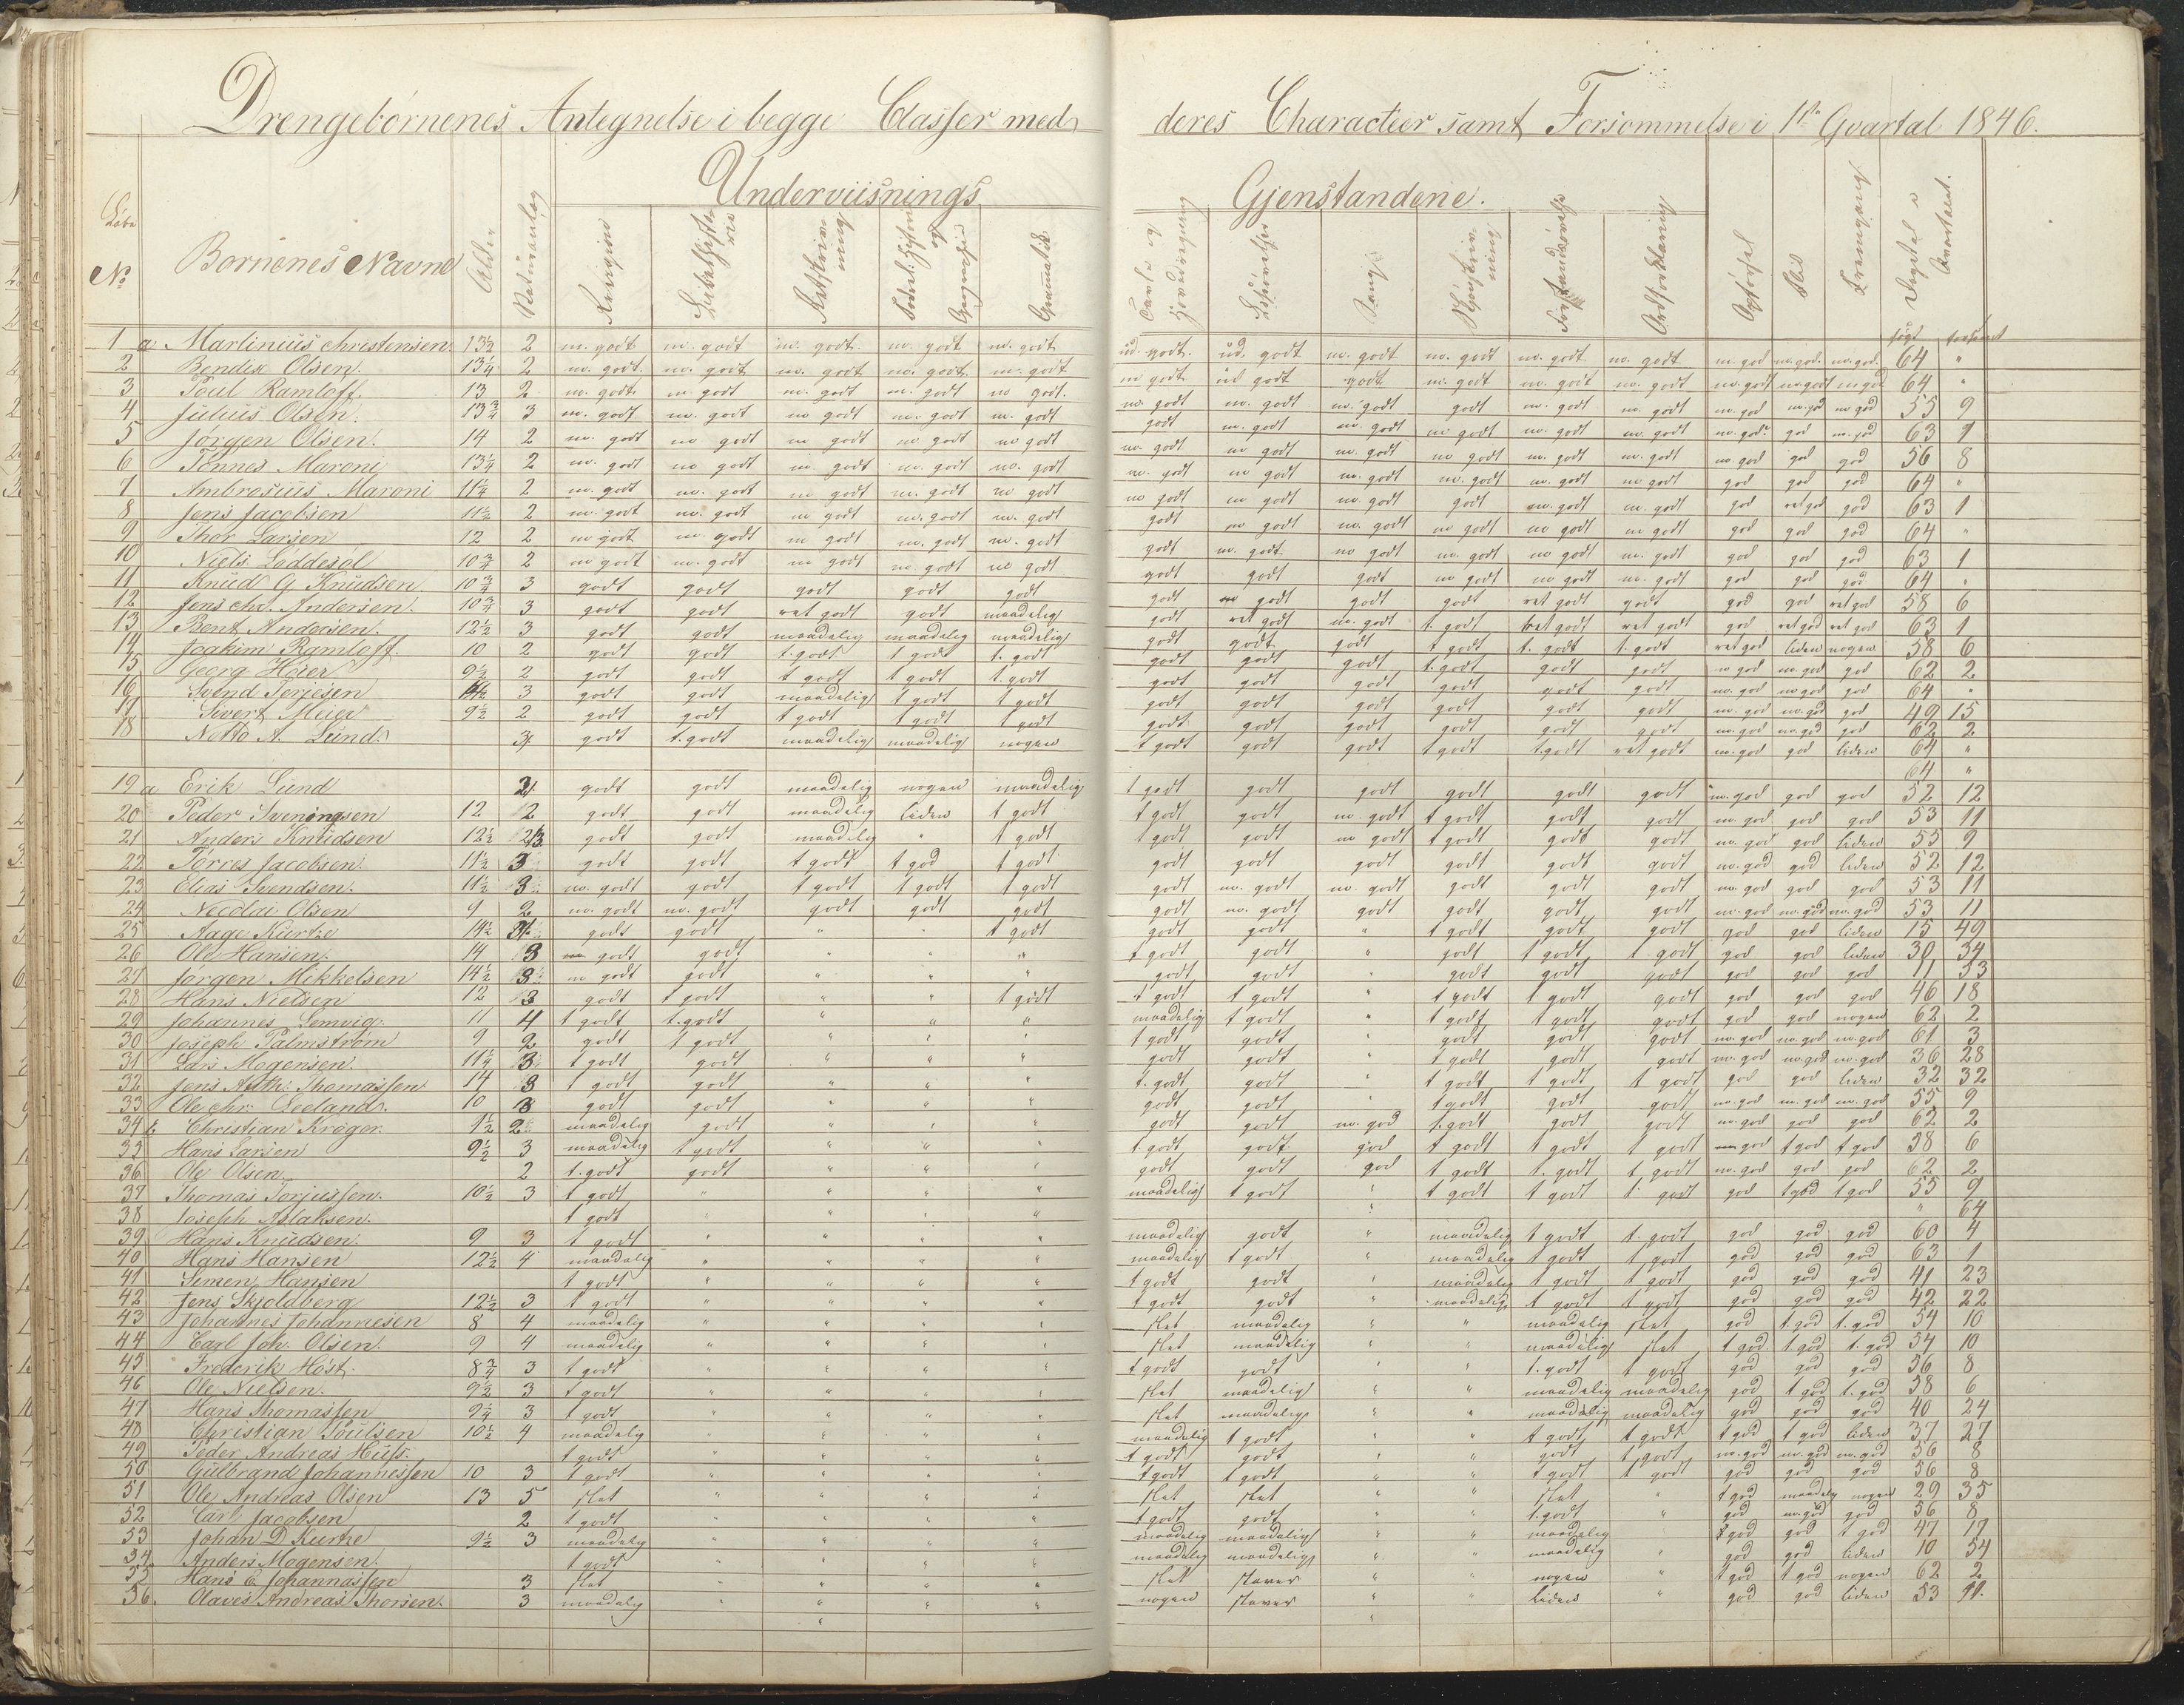 Drengebörnenes Antegnelse i begge Classer med deres Characteer samt Forsömmelse i 1ste Qvartal 1846.
Underviisnings Gjenstandene.
Löbe No Börnenes Navne Alder Naturanlæg Religion Bibelhistorie Retskrivning Fædrel: Historie og Geographie Grammatik Tavle og Hovedregning Læseövelse Sang Skjönskrivning Forstandsövelse Ordforklaring Opförsel Flid Fremgang
sögt forsömt
1 a Martinius Christensen 13½ 2 m. godt m. godt m. godt m. godt m. godt ud. godt. ud. godt m. godt m. godt m. godt m. godt m. god m. god. m. god. 64 "
2 Bendix Olsen. 13¼ 2 m. godt. m. godt m. godt m. godt m. godt m godt ud godt godt m. godt m. godt m. godt m. god m. god m god 64 "
3 Poul Ramloff. 13 2 m. godt m godt m. godt m. godt m godt. m. godt m. godt m. godt godt m. godt m. godt m. god m. god m god 55 9
4 Julius Olsen. 13¾ 3 m. godt m. godt m godt m. godt m. godt godt m. godt m. godt m godt m. godt m. godt m. god god m. god 63 1
5 Jörgen Olsen. 14 2 m. godt m godt m godt m godt m godt m. godt m godt m. godt m godt m. godt m. godt m. god god god 56 8
6 Tönnes Maroni 13¼ 2 m. godt m godt m. godt m. godt m. godt m. godt m godt m. godt m. godt m. godt m godt god god god 64 "
7 Ambrosius Maroni 11¼ 2 m. godt m. godt m godt m. godt m godt m godt m godt m. godt godt m. godt m. godt god ret god god 63 1
8 Jens Jacobsen 11½ 2 m. godt m. godt m godt m. godt m. godt godt m godt m. godt m godt m godt m godt god god god 64 "
9 Thor Larsen 12 2 m godt m. godt m godt m. godt m. godt godt m. godt m godt m. godt m godt m. godt god god god 63 1
10 Niels Löddesöl 10¾ 2 m godt m. godt m godt m godt m godt godt godt godt m godt m godt m. godt god god god 64 "
11 Knud G Knudsen 10¾ 3 godt godt godt godt godt godt godt godt godt ret godt godt god god ret god 58 6
12 Jens chr. Andersen. 10¾ 3 godt godt ret godt godt maadelig godt ret godt m. godt t. godt ret godt ret godt god ret god ret god 63 1
13 Bent Andersen. 12½ 3 godt godt maadelig maadelig maadelig godt godt godt t godt t. godt t. godt ret god liden nogen 58 6
14 Joakim Ramloff. 10 2 godt godt t. godt t godt t. godt godt godt godt t. godt godt godt m god m. god god 62 2
15 Georg Höier 9½ 2 godt godt t godt t godt t. godt godt godt godt godt godt godt m. god m god god 64 "
16 Svend Terjesen 3 godt godt maadelig t godt t godt godt godt godt godt godt godt m. god m. god god 49 15
17 Sivert Meier 9½ 2 godt godt t godt t godt t godt godt godt godt godt godt godt m. god m. god god 62 2
18 Netto A. Lund. 3 godt t. godt maadelig maadelig nogen t godt godt godt t godt t. godt ret godt m. god god liden 64 "
64 "
19 a Erik Lund godt godt maadelig nogen maadelig t godt godt godt godt godt godt m. god god god 52 12
20 Peder Sveningsen 12 2 godt godt maadelig liden t godt t godt godt m. godt t godt godt godt m. god god god 53 11
21 Anders Knudsen 12½ godt godt maadelig " t godt t godt godt m godt t godt godt godt m. god god liden 55 9
22 Torres Jacobsen. 11½ 3 godt godt t godt t god t godt godt godt godt godt godt godt m. god god liden 52 12
23 Elias Svendsen. 11½ 3 m. godt godt t godt t godt t godt godt m. godt m. godt godt godt godt m. god god god 53 11
24 Nicolai Olsen 9 2 m. godt m. godt godt godt godt godt m. godt godt godt godt godt m. god m. god m. god 53 11
25 Aage Kurtze 14½ godt godt " " t godt godt godt " t godt godt godt god god liden 15 49
26 Ole Hansen. 14 3 godt godt " " " t godt godt " godt t godt t godt god god liden 30 34
27 Jörgen Mikkelsen 14½ 3 m godt godt " " " godt godt " godt godt godt god god god 11 53
28 Hans Nielsen 12 3 godt t godt " " t godt t godt t godt " t godt t godt godt god god god 46 18
29 Johannes Lemvig. 11 4 t godt t. godt " " " maadelig t godt " t godt t godt godt god god nogen 62 2
30 Joseph Palmström 9 2 godt t godt " " " t godt godt " godt godt godt m. god m. god m. god 61 3
31 Lars Mogensen. 11¼ 3 t godt godt " " " godt godt " t godt godt godt m. god m. god m. god 36 28
32 Jens Anth: Thomassen 14 3 t godt godt " " " t. godt godt " t godt t godt t godt god god liden 32 32
33 Ole chr. Leeland. 10 3 godt godt " " " godt godt " t godt godt godt m. god m. god m. god 55 9
34 b Christian Kröger. 2 maadelig godt " " " godt godt m. god t. godt godt godt m. god god god 62 2
35 Hans Larsen 9½ 3 maadelig t godt " " " t. godt godt god t godt t godt t godt god t god t god 58 6
36 Ole Olsen 2 t. godt godt " " " godt godt god t godt t. godt t godt m. god god god 62 2
37 Thomas Torjussen. 10½ 3 t godt " " " " maadelig t godt " t godt t godt t godt god t god t god 55 9
38 Joseph Aslaksen. t godt " " " " " " 64
39 Hans Knudsen. 9 3 t godt " " " " maadelig godt " maadelig t godt t. godt god god god 60 4
40 Hans Hansen 12½ 4 maadelig " " " " maadelig t godt " maadelig t godt t godt god god god 63 1
41 Simen Hansen t godt " " " " t godt godt " maadelig t godt t godt god god god 41 23
42 Jens Skjoldberg 12½ 3 t godt " " " " t godt godt " maadelig t godt t godt god god god 42 22
43 Johannes Johannesen 8 4 maadelig " " " " slet maadelig " " maadelig slet god t. god t. god 54 10
44 Carl Joh. Olsen. 9 4 maadelig " " " " slet maadelig " " maadelig slet t god t god t. god 54 10
45 Frederik Höst. 8¾ 3 t godt " " " " t godt godt " " t. godt t godt god god god 56 8
46 Ole Nielsen. 9½ 3 t godt " " " " slet maadelig " " maadelig maadelig god t god t. god 58 6
47 Hans Thomassen 3 t godt " " " " slet maadelig " " maadelig maadelig god god god 40 24
48 Christian Poulsen 10½ 4 maadelig " " " " maadelig t godt " " t godt t godt t god t god liden 37 27
49 Peder Andreas Huus. t godt " " " " t godt godt " " godt t godt m. god m. god m. god 56 8
50 Gulbrand Johannessen 10 3 t godt " " " " t godt t godt " " t godt t godt god god god 56 8
51 Ole Andreas Olsen 13 5 slet " " " " slet slet " " slet " t god maadelig nogen 29 35
52 Carl Jacobsen 2 t godt " " " " t godt godt " " t. godt " god m. god god 56 8
53 Johan D Kurtze 9½ 3 maadelig " " " " maadelig maadelig " " maadelig " t god god t god 47 17
54 Anders Mogensen. t godt " " " " maadelig maadelig " " maadelig " god god liden 10 54
55 Hans C Johannassen 3 slet " " " " slet staver " " nogen " t god t god nogen 62 2
56. Olaves Andreas Thorsen. 3 maadelig " " " " nogen staver " " liden " god god liden 53 11.